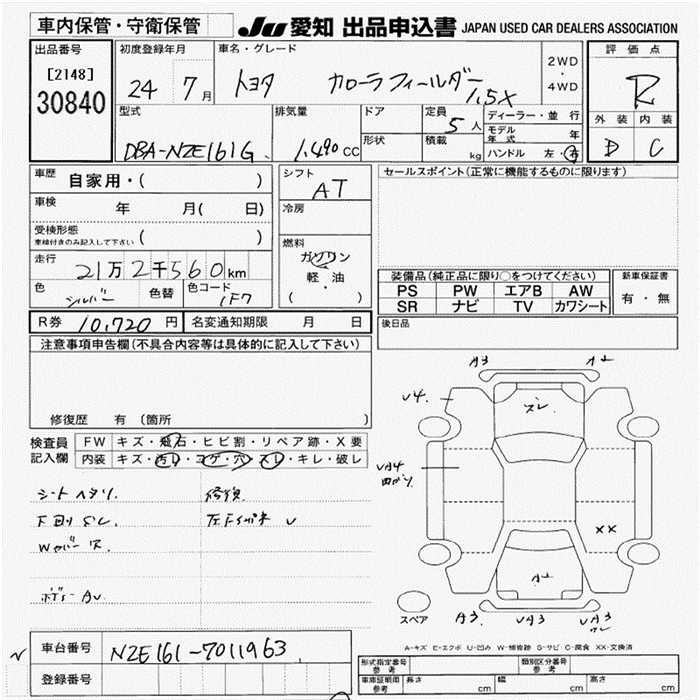 車内保管・守衛保管
JU 愛知 出品申込書 JAPAN USED CAR DEALERS ASSOCIATION
出品番号
[2148]
30840
初度登録年月
24 7月
車名・グレード
トヨタ カローラフィールダー
1.5X
2WD
・
4WD
評価点
R
外装 内装
D C
型式
DBA-NZE161G
排気量
1,490cc
ドア
形状
定員
5人
積載
kg
ディーラー・並行
モデル年式 年
ハンドル 左・右
車歴 自家用・( )
車検 年 月( 日)
受検形態
車検付きのみ記入して下さい ( )
走行 21万2千560km
色 シルバー 色替 色コード 1F7
シフト
AT
冷房
燃料
ガソリン
軽・油
( )
セールスポイント(正常に機能するものに限ります)
装備品(純正品に限り○をつけてください)
PS PW エアB AW
SR ナビ TV カワシート
新車保証書
有・無
R券 10,720円 名変通知期限 月 日
後日品
注意事項申告欄(不具合内容等は具体的に記入して下さい)
修復歴 有(箇所 )
検査員
記入欄
FW キズ・飛石・ヒビ割・リペア跡・X要
内装 キズ・汚レ・コゲ・穴・スレ・キレ・破レ
シートヘタリ
下回りサビ
Wカバーヌ
ボディーAU
修復
A3 A2
U4
ズレ
UA4
曲がり
XX
A2
スペア
A3 UA3 UA3
A-キズ E-エクボ U-凹み W-補修跡 S-サビ C-腐食 XX-交換済
車台番号 NZE161-7011963
登録番号
型式指定番号
参考
類別区分番号
参考
車庫証明用
参考
長さ cm 幅 cm 高さ cm